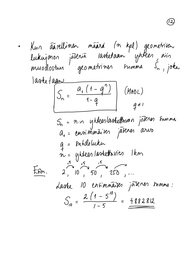 • Kun äärellinen määrä (n kpl) geometrisen
lukujonon jäseniä lasketaan yhteen niin
muodostuu geometrinen summa Sn, joka
lasketaan
Sn = a₁(1-qⁿ) / 1-q (MAOL)
q≠1
Sn = n:n yhteenlaskettavan jäsenen summa
a₁ = ensimmäisen jäsenen arvo
q = suhdeluku
n = yhteenlaskettavien lkm
Esim. 2, 10, 50, 250, ...
Laske 10 ensimmäisen jäsenen summa:
Sn = 2(1-5¹⁰) / 1-5 = 4882812